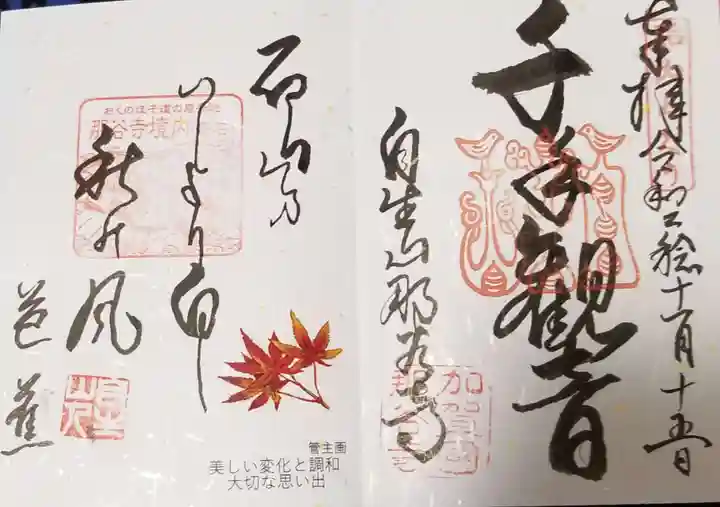 奉拝 令和二稔十一月十五日
千手観音
自生山那谷寺
加賀国
那谷寺
石山乃
いしより白し
秋の風
芭蕉
おくのほそ道の風景地
那谷寺境内
管主画
美しい変化と調和
大切な思い出